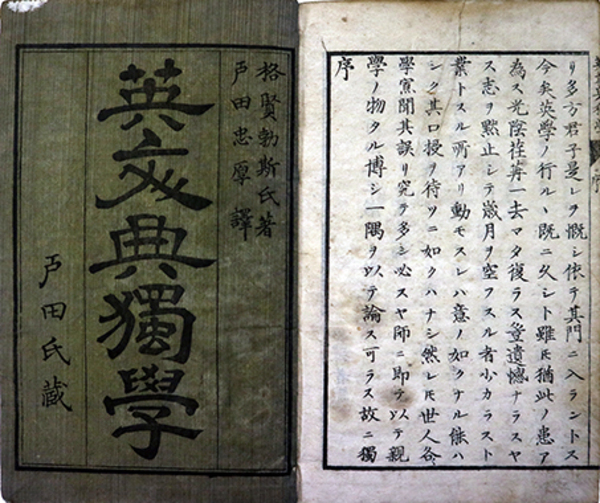 格賢勃斯氏著
戸田忠厚譯
英文典獨學
戸田氏藏
序
學ノ物タル博シ一隅ヲ以テ論ス可ラス故ニ獨
學寡聞其誤リ究テ多シ必スヤ師ニ即テ以テ親
シク其口授ヲ待ツニ如クハナシ然レ𪜈世人各
業トスル所アリ動モスレハ意ノ如クナル能ハ
ス志ヲ黙止シテ歳月ヲ空フスル者小カラスト
為ス光陰荏苒一去マタ復ラス豈遺憾ナラスヤ
今矣英學ノ行ル丶既ニ久シト雖𪜈猶此ノ患ア
リ多方君子是レヲ慨シ依テ其門ニ入ラントス